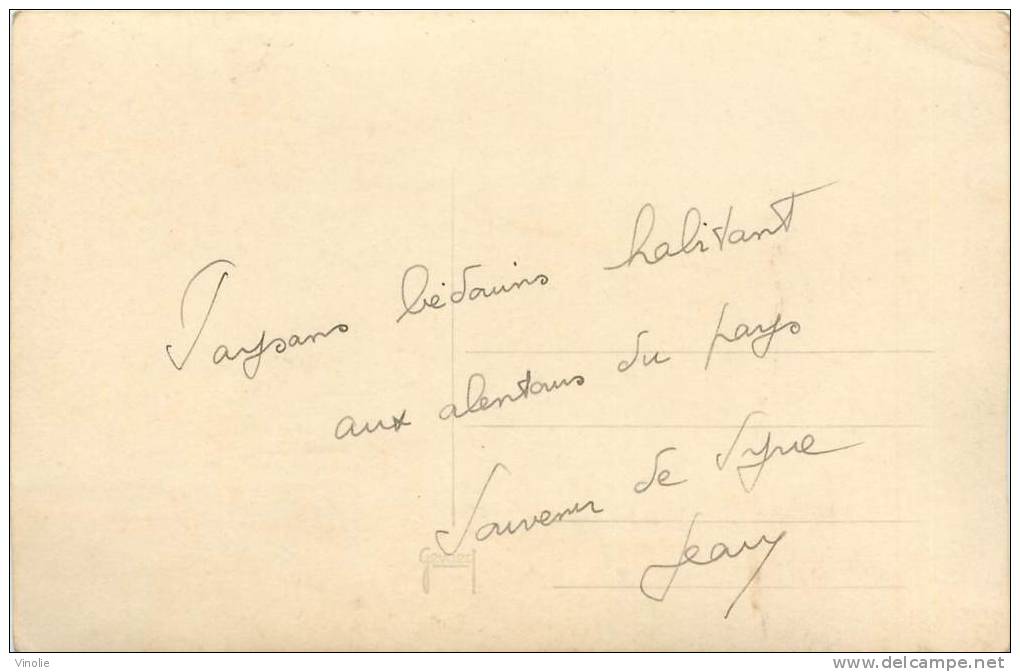 Paysans bédouins habitant
aux alentours du pays
Souvenir de Syrie
Jean
Gevaert
Vinolie
delcampe.net